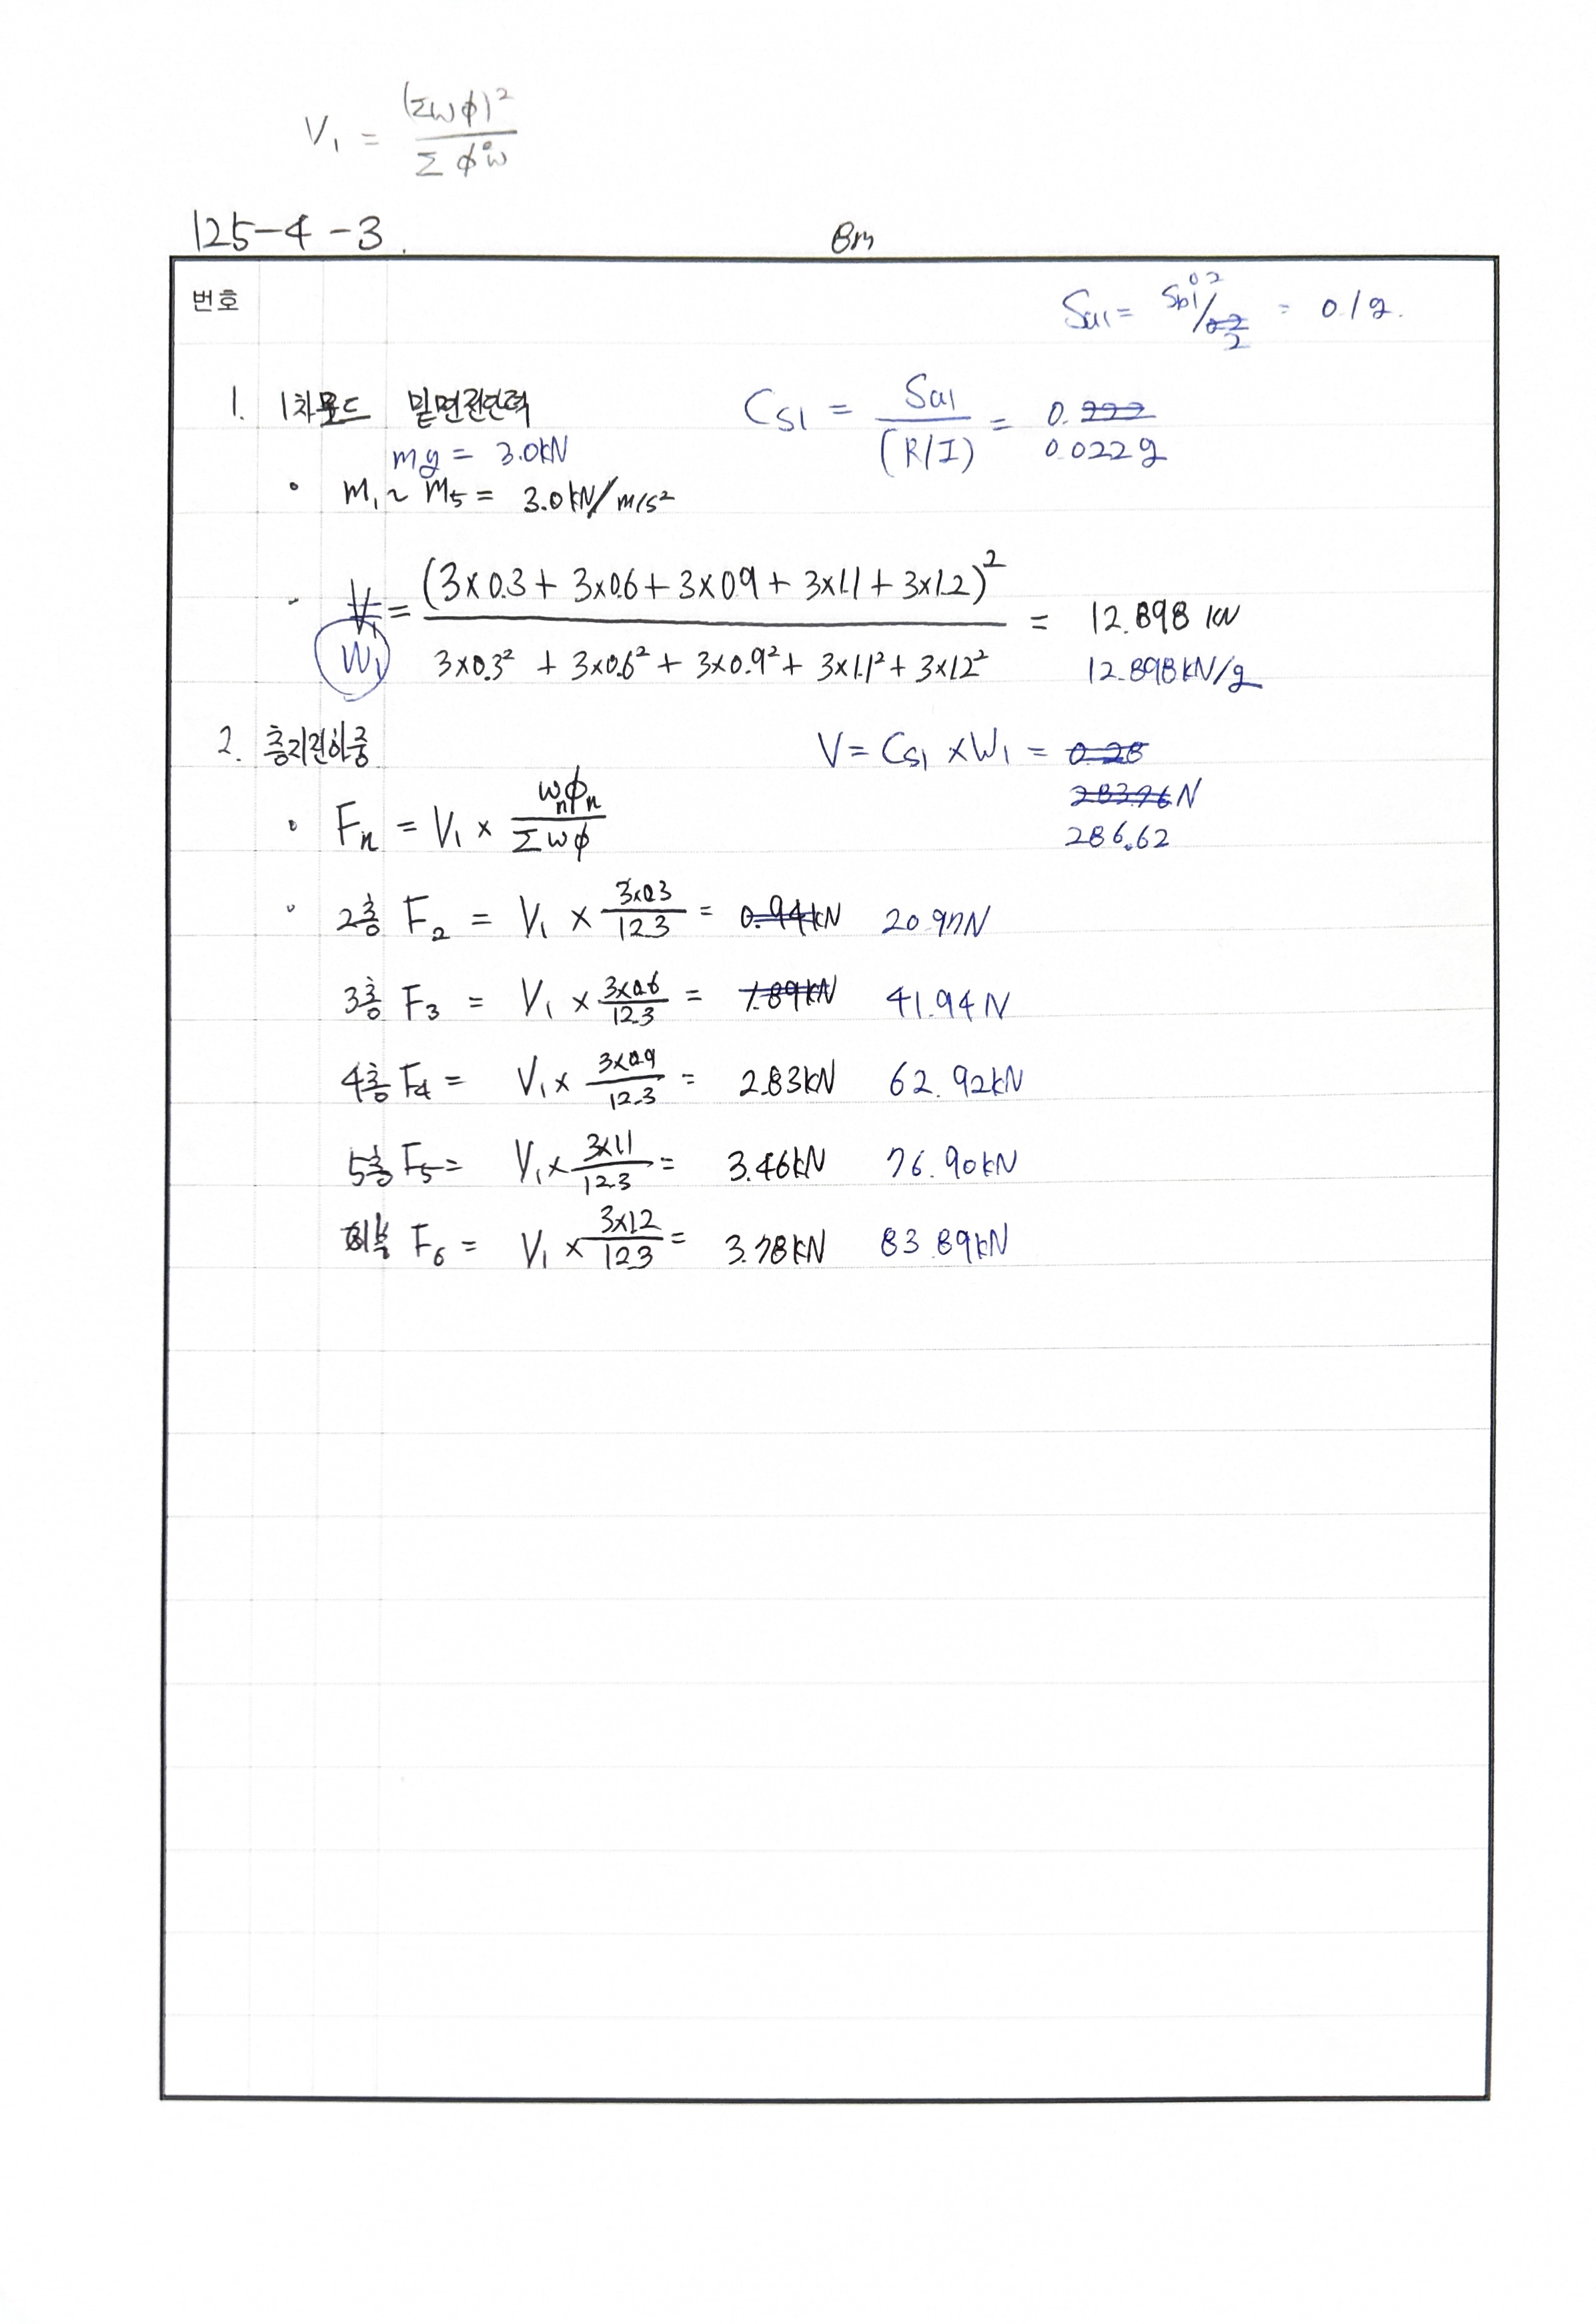 V₁ = (Σwφ)² / Σφ²w
125-4-3.
번호
Sa1 = SD1 0.2 / 2 = 0.1g.
1. 1차모드 밑면전단력
CS1 = Sa1 / (R/I) = 0.222
mg = 3.0kN
0.0222g
• m₁ ~ m₅ = 3.0kN/m/s²
- V₁ = (3×0.3 + 3×0.6 + 3×0.9 + 3×1.1 + 3×1.2)² / 3×0.3² + 3×0.6² + 3×0.9² + 3×1.1² + 3×1.2² = 12.898 kN
W₁ 12.898kN/g
2. 층지진하중
V = CS1 × W₁ = 0.28
283.76N
286.62
• Fn = V₁ × wnφn / Σwφ
• 2층 F₂ = V₁ × 3×0.3 / 12.3 = 0.94kN 20.97N
3층 F₃ = V₁ × 3×0.6 / 12.3 = 1.89kN 41.94N
4층 F₄ = V₁ × 3×0.9 / 12.3 = 2.83kN 62.92kN
5층 F₅ = V₁ × 3×1.1 / 12.3 = 3.46kN 76.90kN
F₆ = V₁ × 3×1.2 / 12.3 = 3.78kN 83.89kN